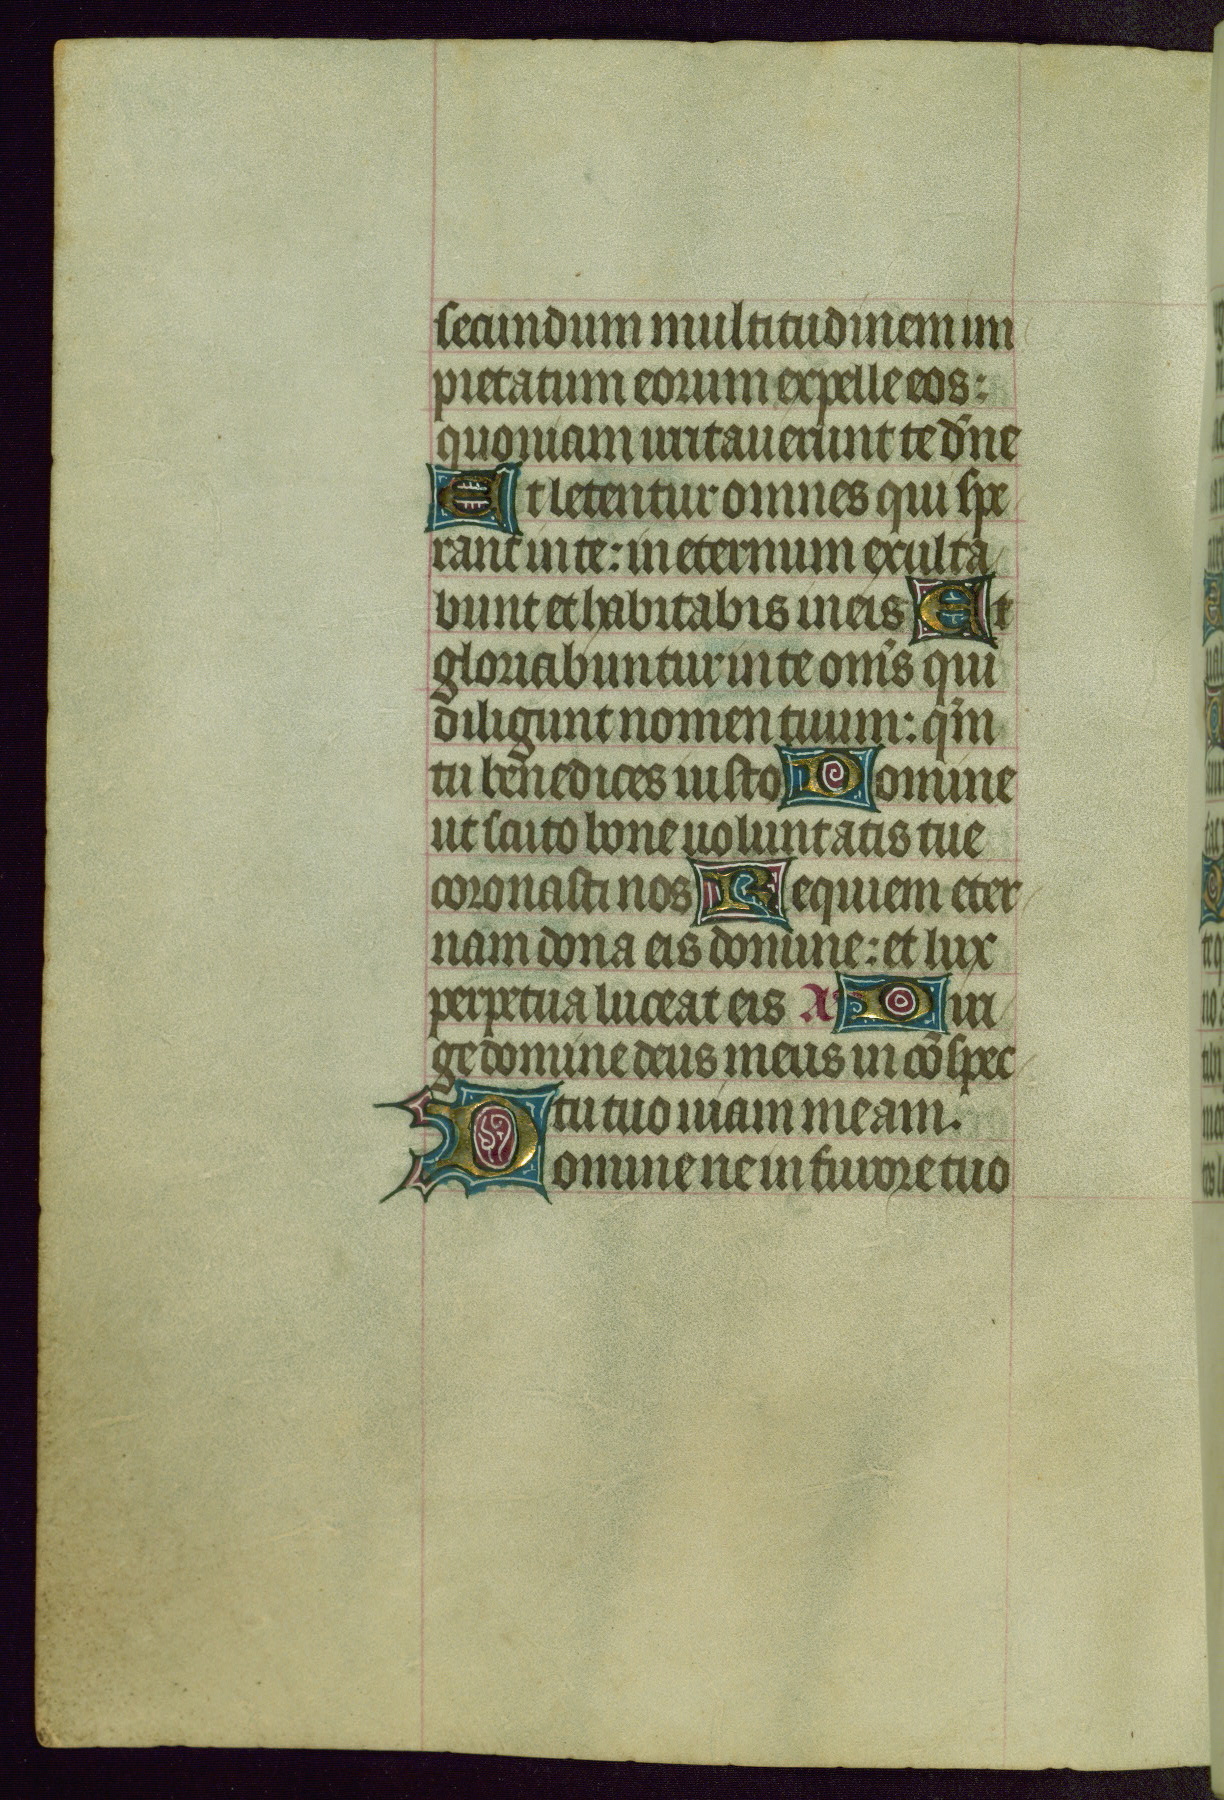 secundum multitudinem im
pietatum eorum expelle eos:
quoniam irritauerunt te dn̄e
Et letentur omnes qui spe
rant in te: in eternum exulta
bunt et habitabis in eis Et
gloriabuntur in te om̄s qui
diligunt nomen tuum: qm̄
tu benedices iusto Domine
ut scuto bone uoluntatis tue
coronasti nos Requiem eter
nam dona eis domine: et lux
perpetua luceat eis A Diri
ge domine deus meus in cōspec
tu tuo uiam meam.
Domine ne in furore tuo